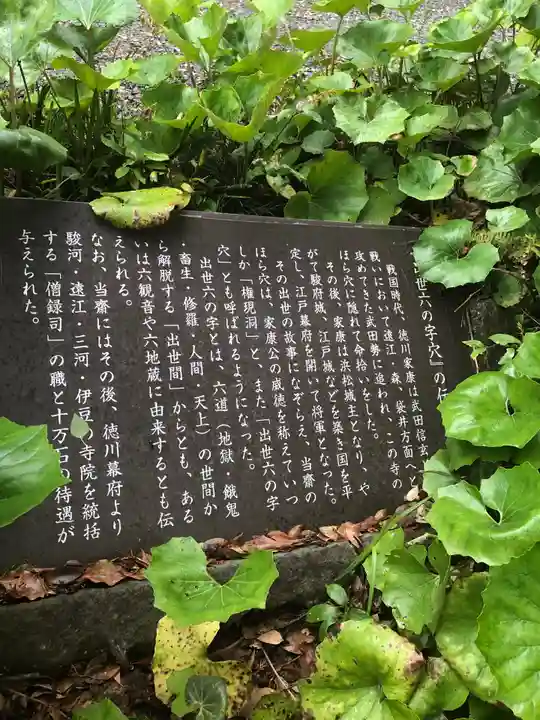 出世六の字穴』の伝
戦国時代、徳川家康は武田信玄
戦いにおいて遠江・森、袋井方面へと
攻めてきた武田勢に追われ、この寺の
ほら穴に隠れて命拾いをした。
その後、家康は浜松城主となり、や
がて駿府城、江戸城などを築き国を平
定し、江戸幕府を開いて将軍となった。
その出世の故事になぞらえ、当斎の
ほら穴は、家康公の威徳を称えていつ
しか「権現洞」と、また「出世六の字
穴」とも呼ばれるようになった。
出世六の字とは、六道（地獄・餓鬼
・畜生・修羅・人間・天上）の世間か
ら解脱する「出世間」からとも、ある
いは六観音や六地蔵に由来するとも伝
えられる。
なお、当斎にはその後、徳川幕府より
駿河・遠江・三河・伊豆の寺院を統括
する「僧録司」の職と十万石の待遇が
与えられた。